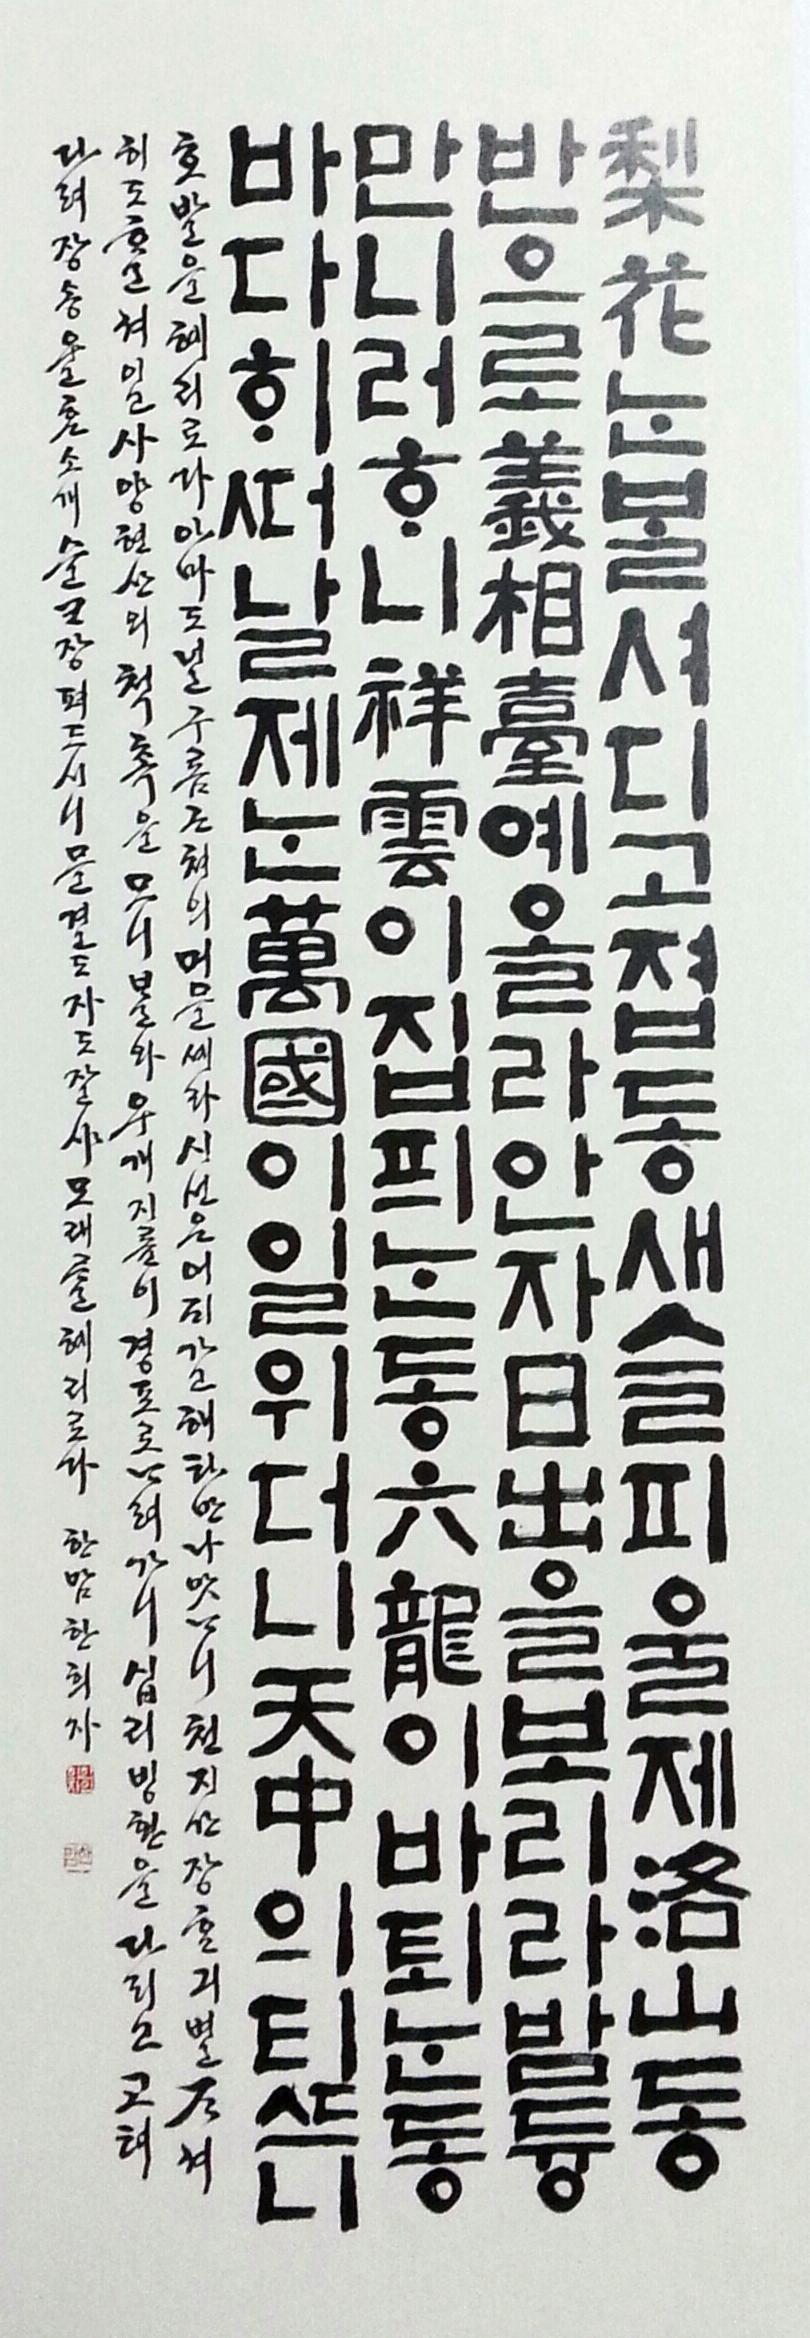 梨花ᄂᆞᆫᄇᆞᆯ셔디고졉동새슬피울제洛山동
반으로義相臺예올라안자日出을보리라밤듕
만니러ᄒᆞ니祥雲이집픠ᄂᆞᆫ동六龍이바퇴ᄂᆞᆫ동
바다ᄒᆡᄯᅥ날제ᄂᆞᆫ萬國이일위더니天中의티ᄯᅳ니
호발을혜리로다아마도녈구름근쳐의머믈셰라시선은어ᄃᆡ가고해타만나맛ᄂᆞ니쳔지간장ᄒᆞᆫ긔별ᄌᆞ셔
히도ᄒᆞᆯ셔일사양현산의쳑툑을므니ᄇᆞᆯ와우개지륜이경포로ᄂᆞ려가니십리빙환을다리고고텨
다려장송울흔소개슬ᄏᆞ장펴드시니믈결도자도잘샤모래ᄅᆞᆯ혜리로다 한밤한희자